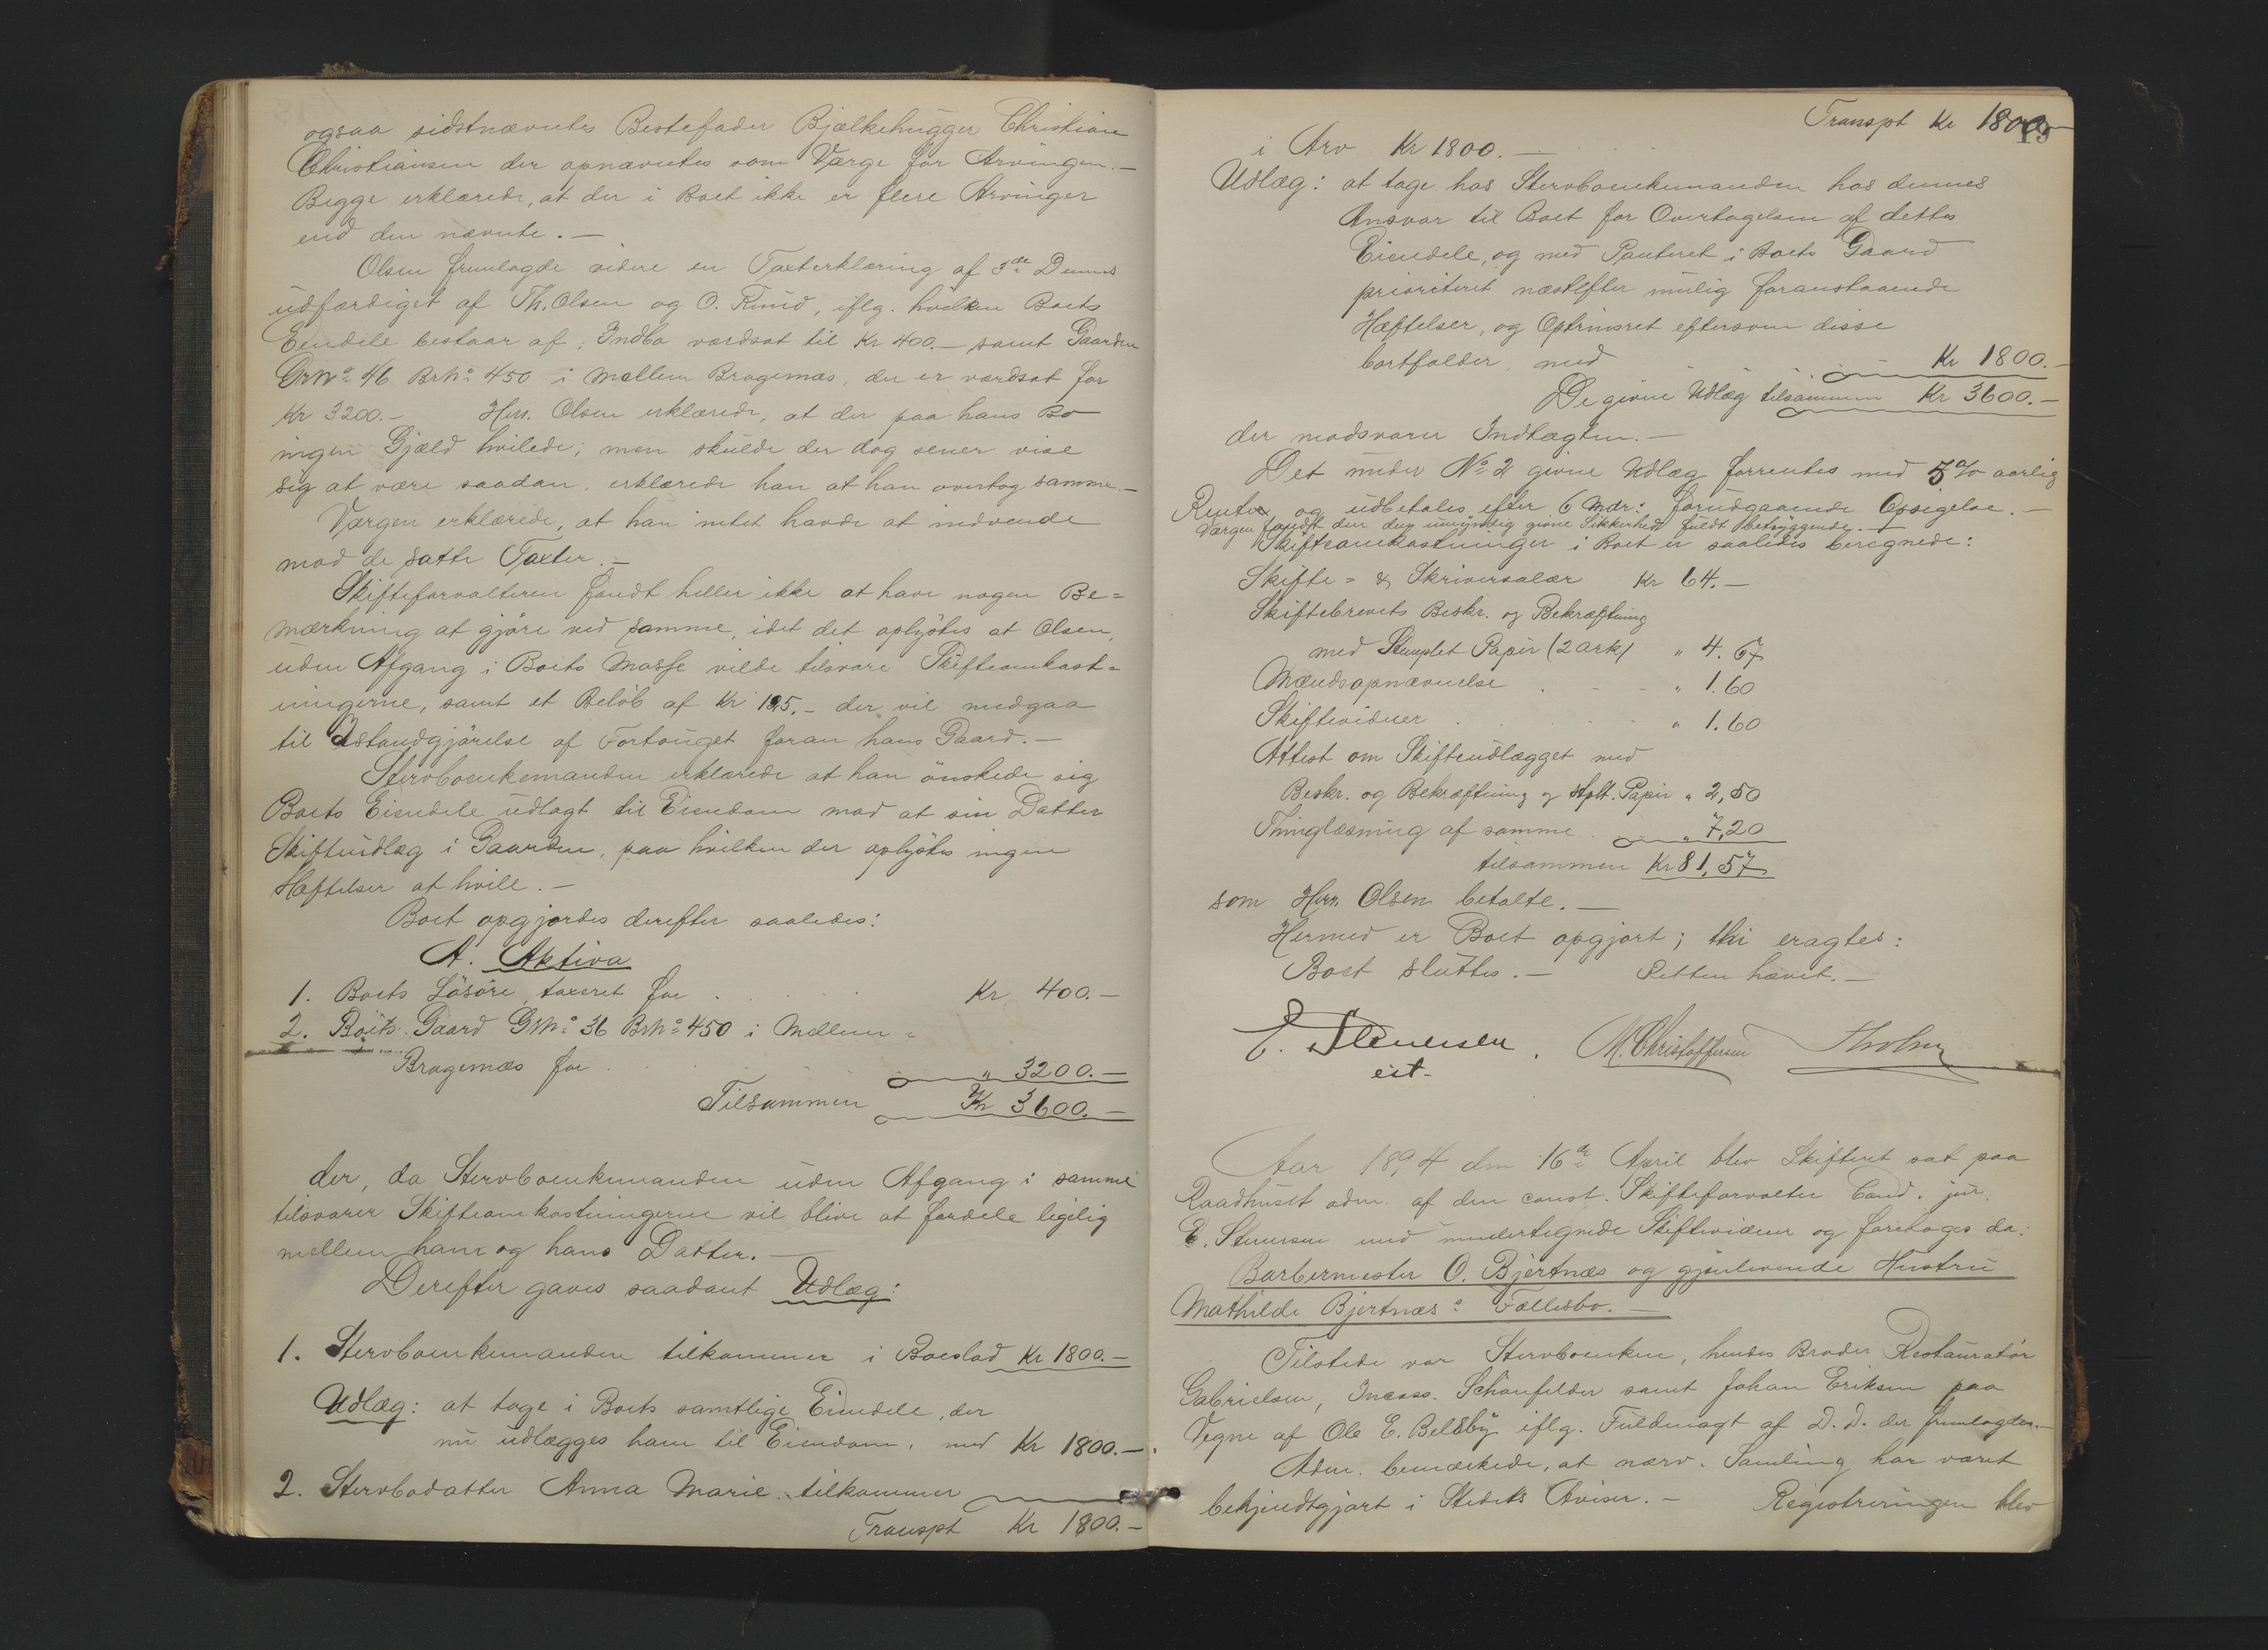 ogsaa sidstnævntes Bestefader Bjælkehugger Christian
Christiansen der opnævntes som Værge for Arvingen.—
Begge erklærede, at der i Boet ikke er flere Arvinger
end den nævnte.—
Olsen fremlagde videre en Taxterklæring af 3de Dennes
udfærdiget af Th. Olsen og O. Ruud, iflg. hvilken Boets
Eiendele bestaar af: Indbo værdsat til Kr 400.— samt Gaarden
GrNo 46 BrNo 450 i Mellem Bragernæs, der er værdsat for
Kr 3200.— Herr. Olsen erklærede, at der paa hans Bo
ingen Gjæld hvilede; men skulde der dog sener vise
sig at være saadan, erklærede han at han overtog samme.—
Værgen erklærede, at han intet havde at indvende
mod de satte Taxter.—
Skifteforvalteren fandt heller ikke at have nogen Be=
mærkning at gjøre ved samme, idet det oplystes at Olsen,
uden Afgang i Boets Masse vilde tilsvare Skifteomkost=
ningerne, samt et Beløb af Kr 125.— der vil medgaa
til Istandgjørelse af Fortouget foran hans Gaard.—
Stervboenkemanden erklærede at han ønskede sig
Boets Eiendele udlagt til Eiendom mod at sin Datter
Skifteudlæg i Gaarden, paa hvilken der oplystes ingen
Hæftelser at hvile.—
Boet opgjordes derefter saaledes:
A. Aktiva
1. Boets Løsøre, taxeret for . . . Kr 400.—
2. Boets Gaard GrNo 36 BrNo 450 i Mellem=
Bragernæs for . . . " 3200.—
Tilsammen Kr 3600.—
der, da Stervboenkemanden uden Afgang i samme
tilsvarer Skifteomkostningerne vil blive at fordele ligelig
mellem ham og hans Datter.—
Derefter gaves saadant Udlæg:
1. Stervboenkemanden tilkommer i Boeslod Kr 1800.—
Udlæg: at tage i Boets samtlige Eiendele, der
nu udlægges ham til Eiendom, med Kr 1800.—
2. Stervbodatter Anna Marie tilkommer
Transpt Kr 1800.—
Transpt Kr 1800.—
i Arv Kr 1800.—
Udlæg: at tage hos Stervboenkemanden hos dennes
Ansvar til Boet for Overtagelsen af dettes
Eiendele, og med Panteret i Boets Gaard
prioriteret næstefter mulig foranstaaende
Hæftelser, og Optrinsret eftersom disse
bortfalder, med Kr 1800.—
De givne Udlæg tilsammen Kr 3600.—
der modsvarer Indtægten.—
Det under No 2 givne Udlæg forrentes med 5 % aarlig
Rente og udbetales efter 6 Mdr: forudgaaende Opsigelse.—
Værgen fandt den den umyndig givne Sikkerhed fuldt betryggende.—
Skifteomkostninger i Boet er saaledes beregnede:
Skifte= & Skriversalær Kr 64.—
Skiftebrevets Beskr. og Bekræftning
med Stemplet Papir (2 Ark) " 4.67
Mændsopnævnelse . . . " 1.60
Skiftevidner . . . " 1.60
Attest om Skifteudlægget med
Beskr. og Bekræftning og stplt. Papir " 2,50
Thinglæsning af samme . . " 7,20
tilsammen Kr 81,57
som Herr Olsen betalte.—
Hermed er Boet opgjort; thi eragtes:
Boet sluttes.— Retten hævet.—
E. Stenersen. M. Christoffersen
cst.
Aar 1894 den 16de April blev Skifteret sat paa
Raadhuset adm. af den const. Skifteforvalter Cand. jur.
E. Stenersen med undertegnede Skiftevidner og foretoges da:
Barbermester O. Bjertnæs og gjenlevende Hustru
Mathilde Bjertnæs: Fællesbo.—
Tilstede var Stervboenken, hendes Broder Restauratør
Gabrielsen, Incass. Schønfelder samt Johan Eriksen paa
Vegne af Ole E. Belsby iflg. Fuldmagt af D. D. der fremlagdes.—
Adm. bemærkede, at nærv. Samling har været
bekjendtgjort i Stedets Aviser.— Registreringen blev